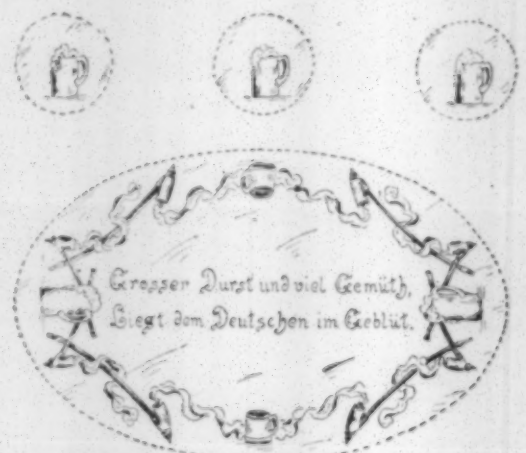 Grosser Durst und viel Gemüth,
Liegt dem Deutschen im Geblüt.